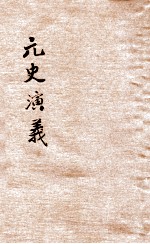 元史演義